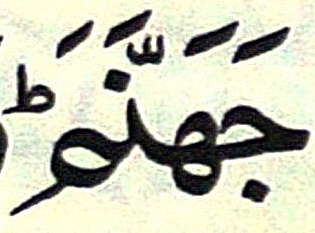 جَهَنَّمَؕ